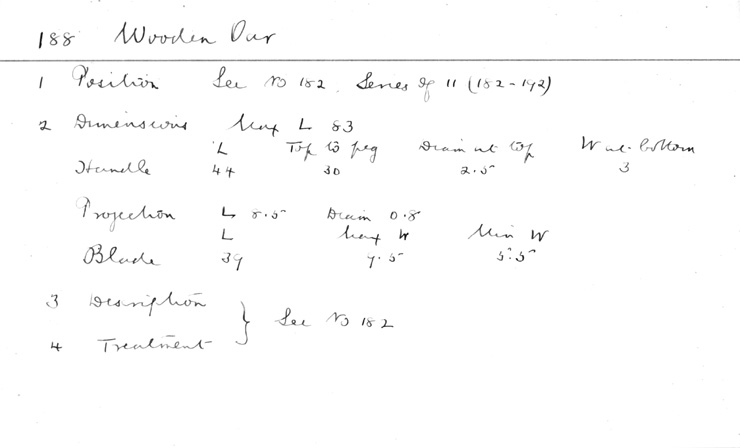 188 Wooden Oar
1 Position See No 182. Series of 11 (182-192)
2 Dimensions Max L 83
L Top to peg Diam at top W at bottom
Handle 44 30 2.5 3
Projection L 8.5 Diam 0.8
L Max W Min W
Blade 39 7.5 5.5
3 Description
See No 182
4 Treatment